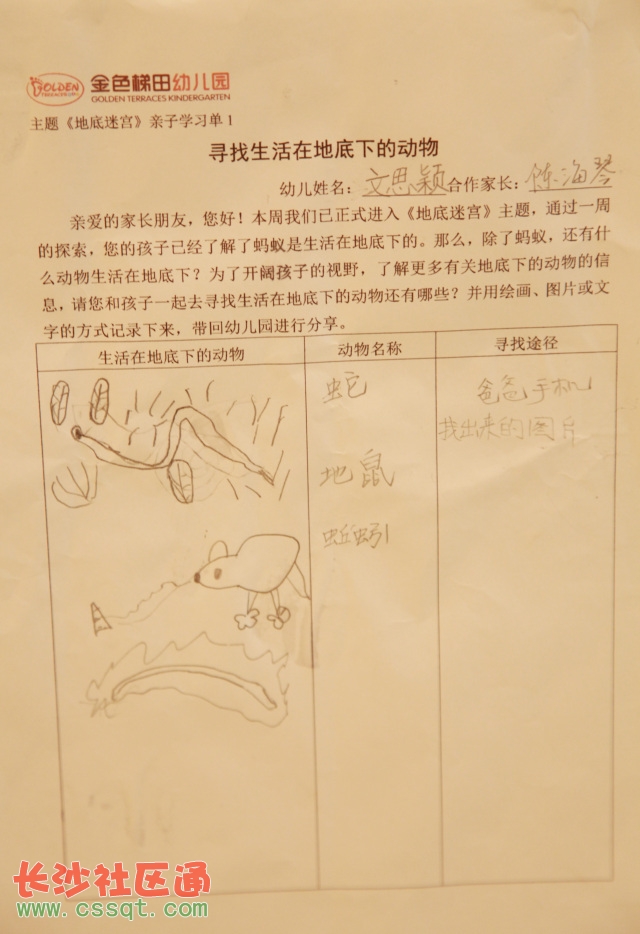 GOLDEN
金色梯田幼儿园
GOLDEN TERRACES KINDERGARTEN
主题《地底迷宫》亲子学习单1
寻找生活在地底下的动物
幼儿姓名：文思颖 合作家长：陈海琴
亲爱的家长朋友，您好！本周我们已正式进入《地底迷宫》主题，通过一周
的探索，您的孩子已经了解了蚂蚁是生活在地底下的。那么，除了蚂蚁，还有什
么动物生活在地底下？为了开阔孩子的视野，了解更多有关地底下的动物的信
息，请您和孩子一起去寻找生活在地底下的动物还有哪些？并用绘画、图片或文
字的方式记录下来，带回幼儿园进行分享。
生活在地底下的动物 动物名称 寻找途径
蛇 爸爸手机
找出来的图片
地鼠
蚯蚓
长沙社区通
www.cssqt.com